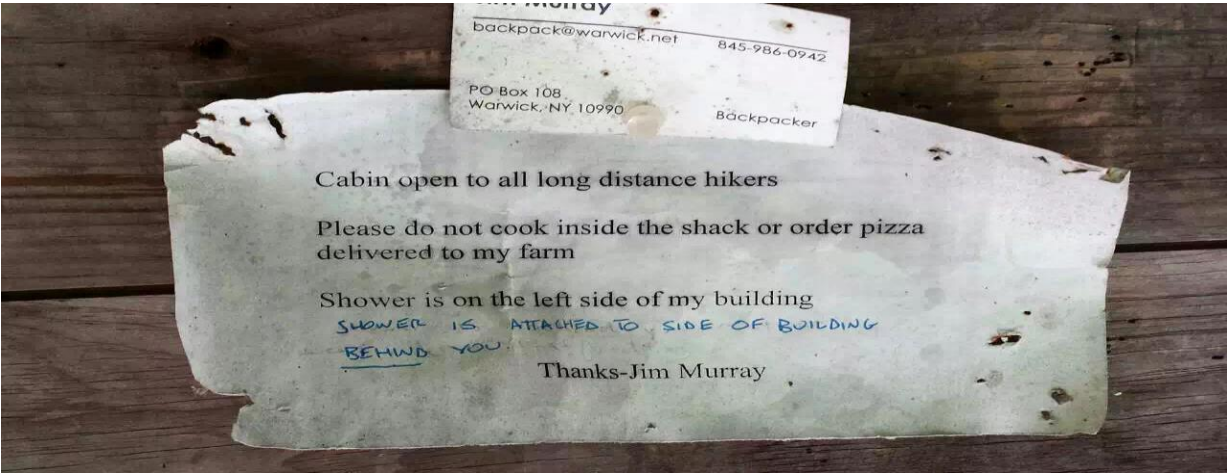 Murray
backpack@warwick.net 845-986-0942
PO Box 108
Warwick, NY 10990
Backpacker
Cabin open to all long distance hikers
Please do not cook inside the shack or order pizza
delivered to my farm
Shower is on the left side of my building
SHOWER IS ATTACHED TO SIDE OF BUILDING
BEHIND YOU
Thanks-Jim Murray